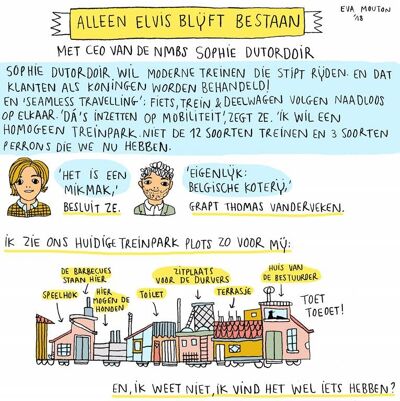 ALLEEN ELVIS BLIJFT BESTAAN
EVA MOUTON
'18
MET CEO VAN DE NMBS SOPHIE DUTORDOIR
SOPHIE DUTORDOIR WIL MODERNE TREINEN DIE STIPT RIJDEN. EN DAT
KLANTEN ALS KONINGEN WORDEN BEHANDELD!
EN 'SEAMLESS TRAVELLING': FIETS, TREIN & DEELWAGEN VOLGEN NAADLOOS
OP ELKAAR. 'DÁ'S INZETTEN OP MOBILITEIT', ZEGT ZE. 'IK WIL EEN
HOMOGEEN TREINPARK. NIET DE 12 SOORTEN TREINEN EN 3 SOORTEN
PERRONS DIE WE NU HEBBEN.
'HET IS EEN
MIKMAK,'
BESLUIT ZE.
'EIGENLIJK:
BELGISCHE KOTERIJ,'
GRAPT THOMAS VANDERVEKEN.
IK ZIE ONS HUIDIGE TREINPARK PLOTS ZO VOOR MIJ:
DE BARBECUES
STAAN HIER
ZITPLAATS
VOOR DE DURVERS
HUIS VAN
DE BESTUURDER
SPEELHOK
HIER
MOGEN DE
HONDEN
TOILET
TERRASJE
TOET
TOEOET!
EN, IK WEET NIET, IK VIND HET WEL IETS HEBBEN?